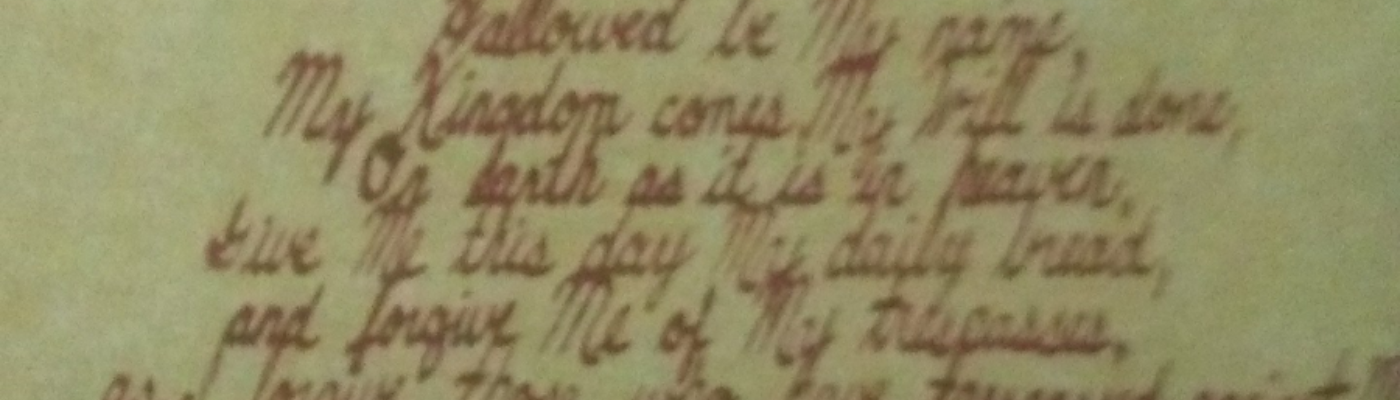 Hallowed be My name,
My Kingdom comes My Will is done,
On earth as it is in heaven,
Give Me this day My daily bread,
and forgive Me of My trespasses,
as I forgive those who have trespassed against